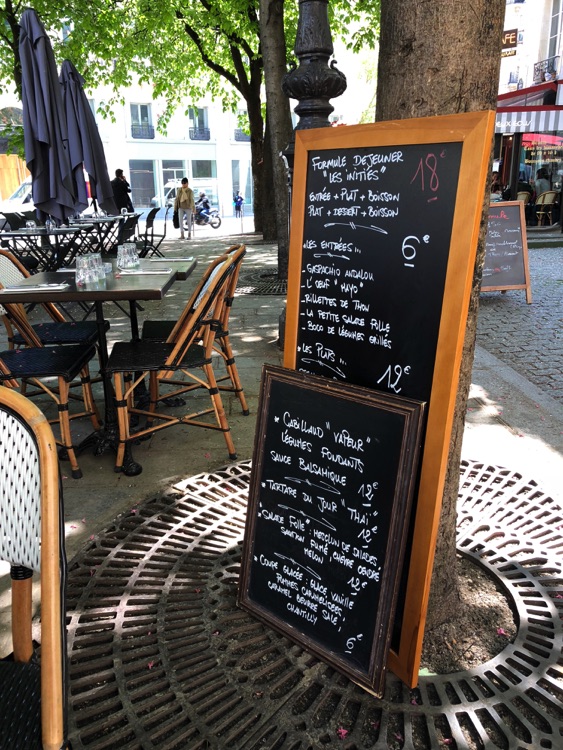 FORMULE DEJEUNER 18€
"LES INITIÉS"
ENTRÉE + PLAT + BOISSON
PLAT + DESSERT + BOISSON
• LES ENTRÉES... 6€
- GASPACHIO ANDALOU
- L'OEUF "MAYO"
- RILLETTES DE THON
- LA PETITE SALADE FOLLE
- BOCO DE LÉGUMES GRILLÉS
• LES PLATS... 12€
* CABILLAUD "VAPEUR"
LÉGUMES FONDANTS
SAUCE BALSAMIQUE 12€
* TARTARE DU JOUR "THAÏ" 12€
* SALADE FOLLE : MESCLUN DE SALADES,
SAUMON FUMÉ, CHÈVRE CENDRÉ
MELON 12€
* COUPE GLACÉE : GLACE VANILLE
POMMES CARAMÉLISÉES
CARAMEL BEURRE SALÉ,
CHANTILLY 6€